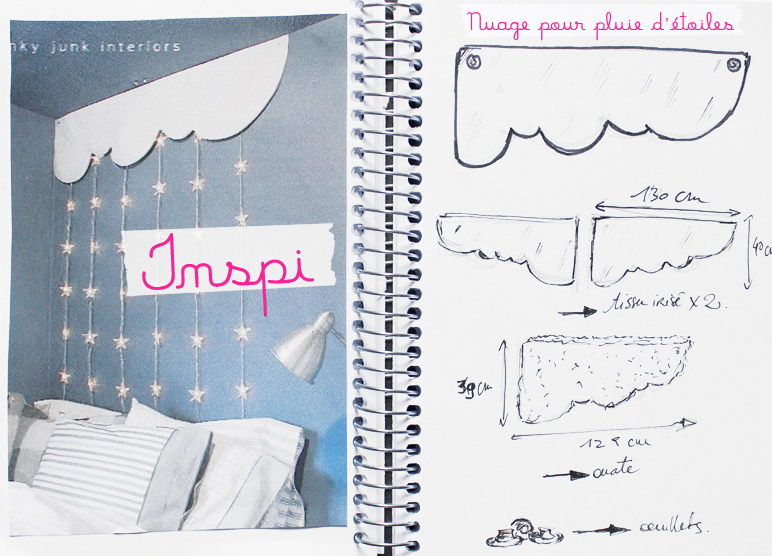 nky junk interiors
Inspi
Nuage pour pluie d'étoiles
130 cm
40 c
tissu irisé x 2.
39 cm
129 cm
ouate
oeuillets.